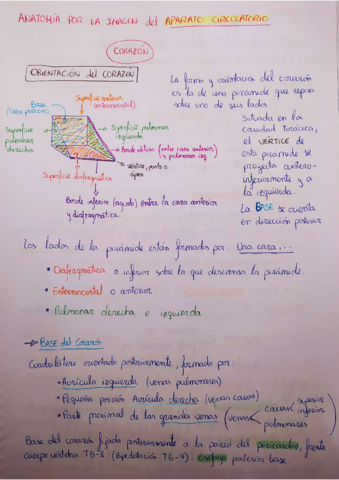 ANATOMÍA POR LA IMAGEN del APARATO CIRCULATORIO
CORAZÓN
ORIENTACIÓN del CORAZÓN
La forma y orientación del corazón
es la de una pirámide que reposa
sobre uno de sus lados.
Situada en la
cavidad torácica,
el VÉRTICE de
esta pirámide se
proyecta antero-
inferiormente y a
la izquierda.
La BASE se orienta
en dirección posterior.
Superficie anterior
(esternocostal)
Base
(cara posterior)
Superficie
pulmonar
derecha
Superficie pulmonar
izquierda
Borde obtuso (entre cara anterior
y pulmonar izq.
Vértice, punta o
ápex
Superficie diafragmática
Borde inferior (agudo) entre la cara anterior
y diafragmática.
Los lados de la pirámide están formados por: Una cara...
• Diafragmática o inferior sobre la que descansa la pirámide.
• Esternocostal o anterior.
• Pulmonar derecha e izquierda
→ BASE del Corazón
Cuadrilátero orientado posteriormente, formado por:
• Aurícula izquierda (venas pulmonares)
• Pequeña porción Aurícula derecha (venas cavas)
• Parte proximal de las grandes venas (venas cavas superior
inferior
pulmonares
Base del corazón fijada posteriormente a la pared del pericardio, frente
cuerpos vértebras T5-8 (Bipedestación T6-9). Esófago posterior base.